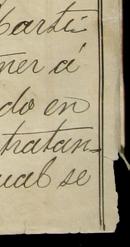 Marti-
ner á
do en
tratan-
ual se